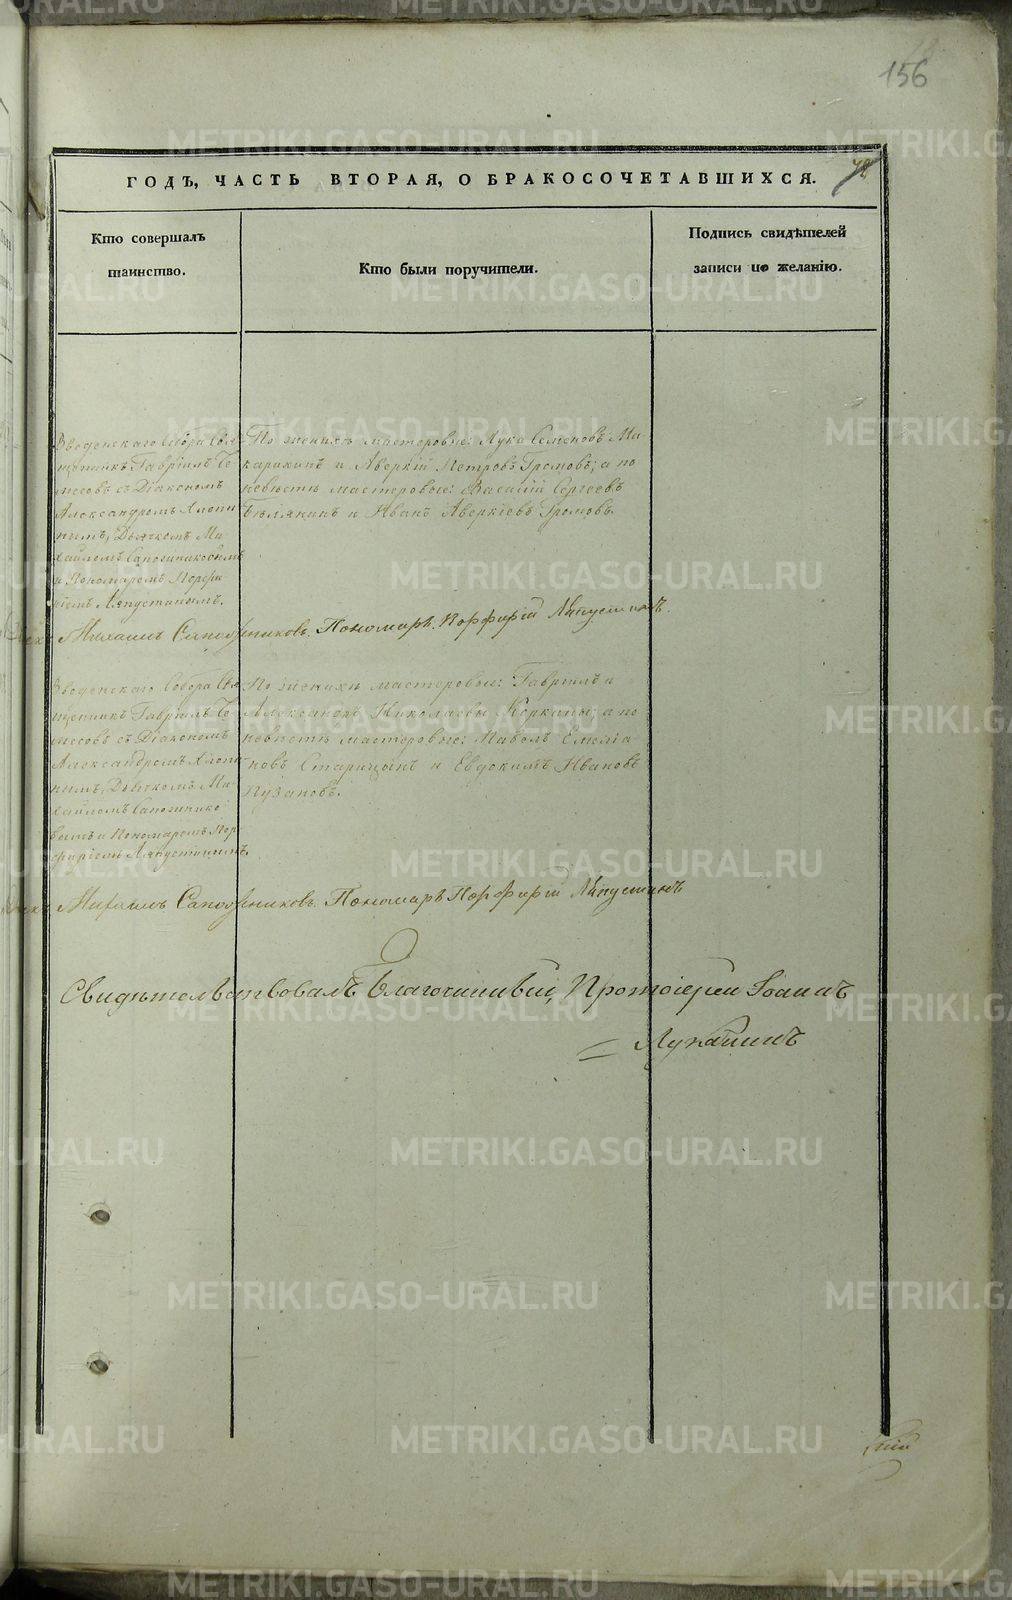 156
ГОДЪ, ЧАСТЬ ВТОРАЯ, О БРАКОСОЧЕТАВШИХСЯ.
Кто совершалъ
таинство.
Кто были поручители.
Подпись свидѣтелей
записи по желанію.
Введенскаго Собора Свя-
щенникъ Гавріилъ Че-
месовъ съ Діакономъ
Александромъ Хлопи-
нымъ, Дьячкомъ Ми-
хайломъ Сапожниковымъ
и Пономаремъ Порфи-
ріемъ Ляпустинымъ.
По женихѣ мастеровые: Лука Семеновъ Ма-
карихинъ и Аверкій Петровъ Громовъ; а по
невѣстѣ мастеровые: Василій Сергеевъ
Бѣлянинъ и Иванъ Аверкіевъ Громовъ.
Михаилъ Сапожниковъ. Пономарь Порфирій Ляпустинъ.
Введенскаго Собора Свя-
щенникъ Гавріилъ Че-
месовъ съ Діакономъ
Александромъ Хлопи-
нымъ, Дьячкомъ Ми-
хайломъ Сапожнико-
вымъ и Пономаремъ Пор-
фиріемъ Ляпустинымъ.
По женихѣ мастеровые: Гавріилъ и
Александръ Николаевы Коркины; а по
невѣстѣ мастеровые: Павелъ Емелія-
новъ Старицынъ и Евдокимъ Ивановъ
Пузановъ.
Михаилъ Сапожниковъ. Пономарь Порфирій Ляпустинъ
Свидѣтельствовалъ Благочинный, Протоіерей Іоаннъ
Лукашинъ
METRIKI.GASO-URAL.RU